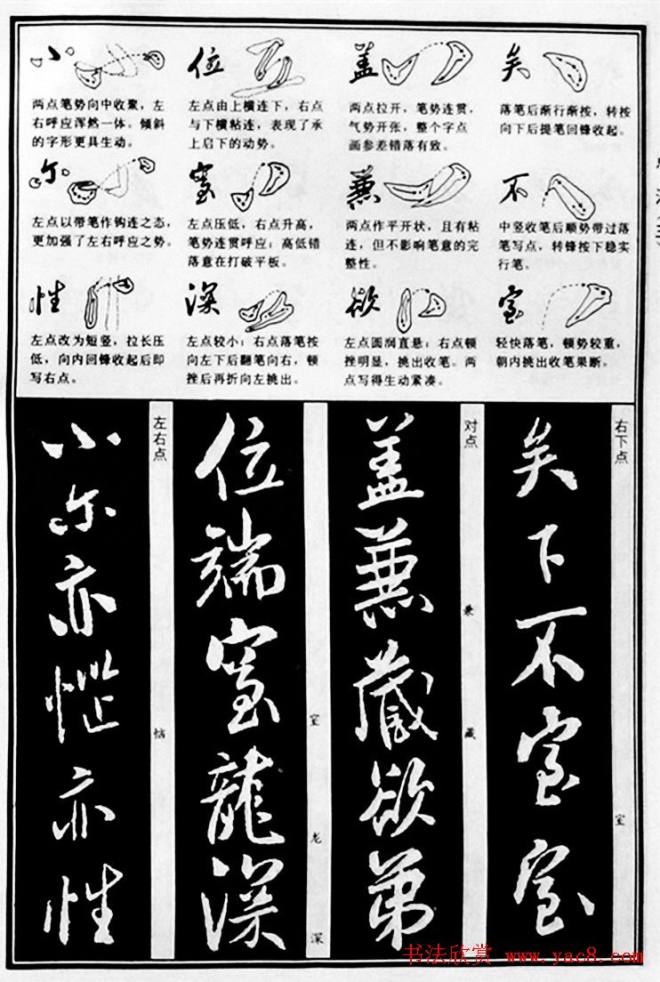 小
两点笔势向中收聚，左
右呼应浑然一体。倾斜
的字形更具生动。
位
左点由上横连下，右点
与下横粘连，表现了承
上启下的动势。
盖
两点拉开，笔势连贯，
气势开张，整个字点
画参差错落有致。
矣
落笔后渐行渐按，转按
向下后提笔回锋收起。
尔
左点以带笔作钩连之态，
更加强了左右呼应之势。
室
左点压低，右点升高，
笔势连贯呼应；高低错
落意在打破平板。
兼
两点作平开状，且有粘
连，但不影响笔意的完
整性。
不
中竖收笔后顺势带过落
笔写点，转锋按下稳实
行笔。
性
左点改为短竖，拉长压
低，向内回锋收起后即
写右点。
深
左点较小；右点落笔按
向左下后翻笔向右，顿
挫后再折向左挑出。
欲
左点圆润直悬；右点顿
挫明显，挑出收笔。两
点写得生动紧凑。
室
轻快落笔，顿势较重，
朝内挑出收笔果断。
右下点
矣下不室室
室
对点
盖兼藏欲弟
兼
藏
位端室龙深
室
龙
深
左右点
小尔亦恼亦性
恼
书法欣赏 www.yac8.com